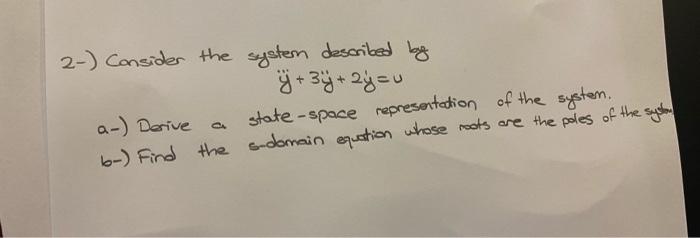 2-) Consider the system described by
y⃛ + 3ÿ + 2ẏ = u
a-) Derive a state-space representation of the system.
b-) Find the s-domain equation whose roots are the poles of the system